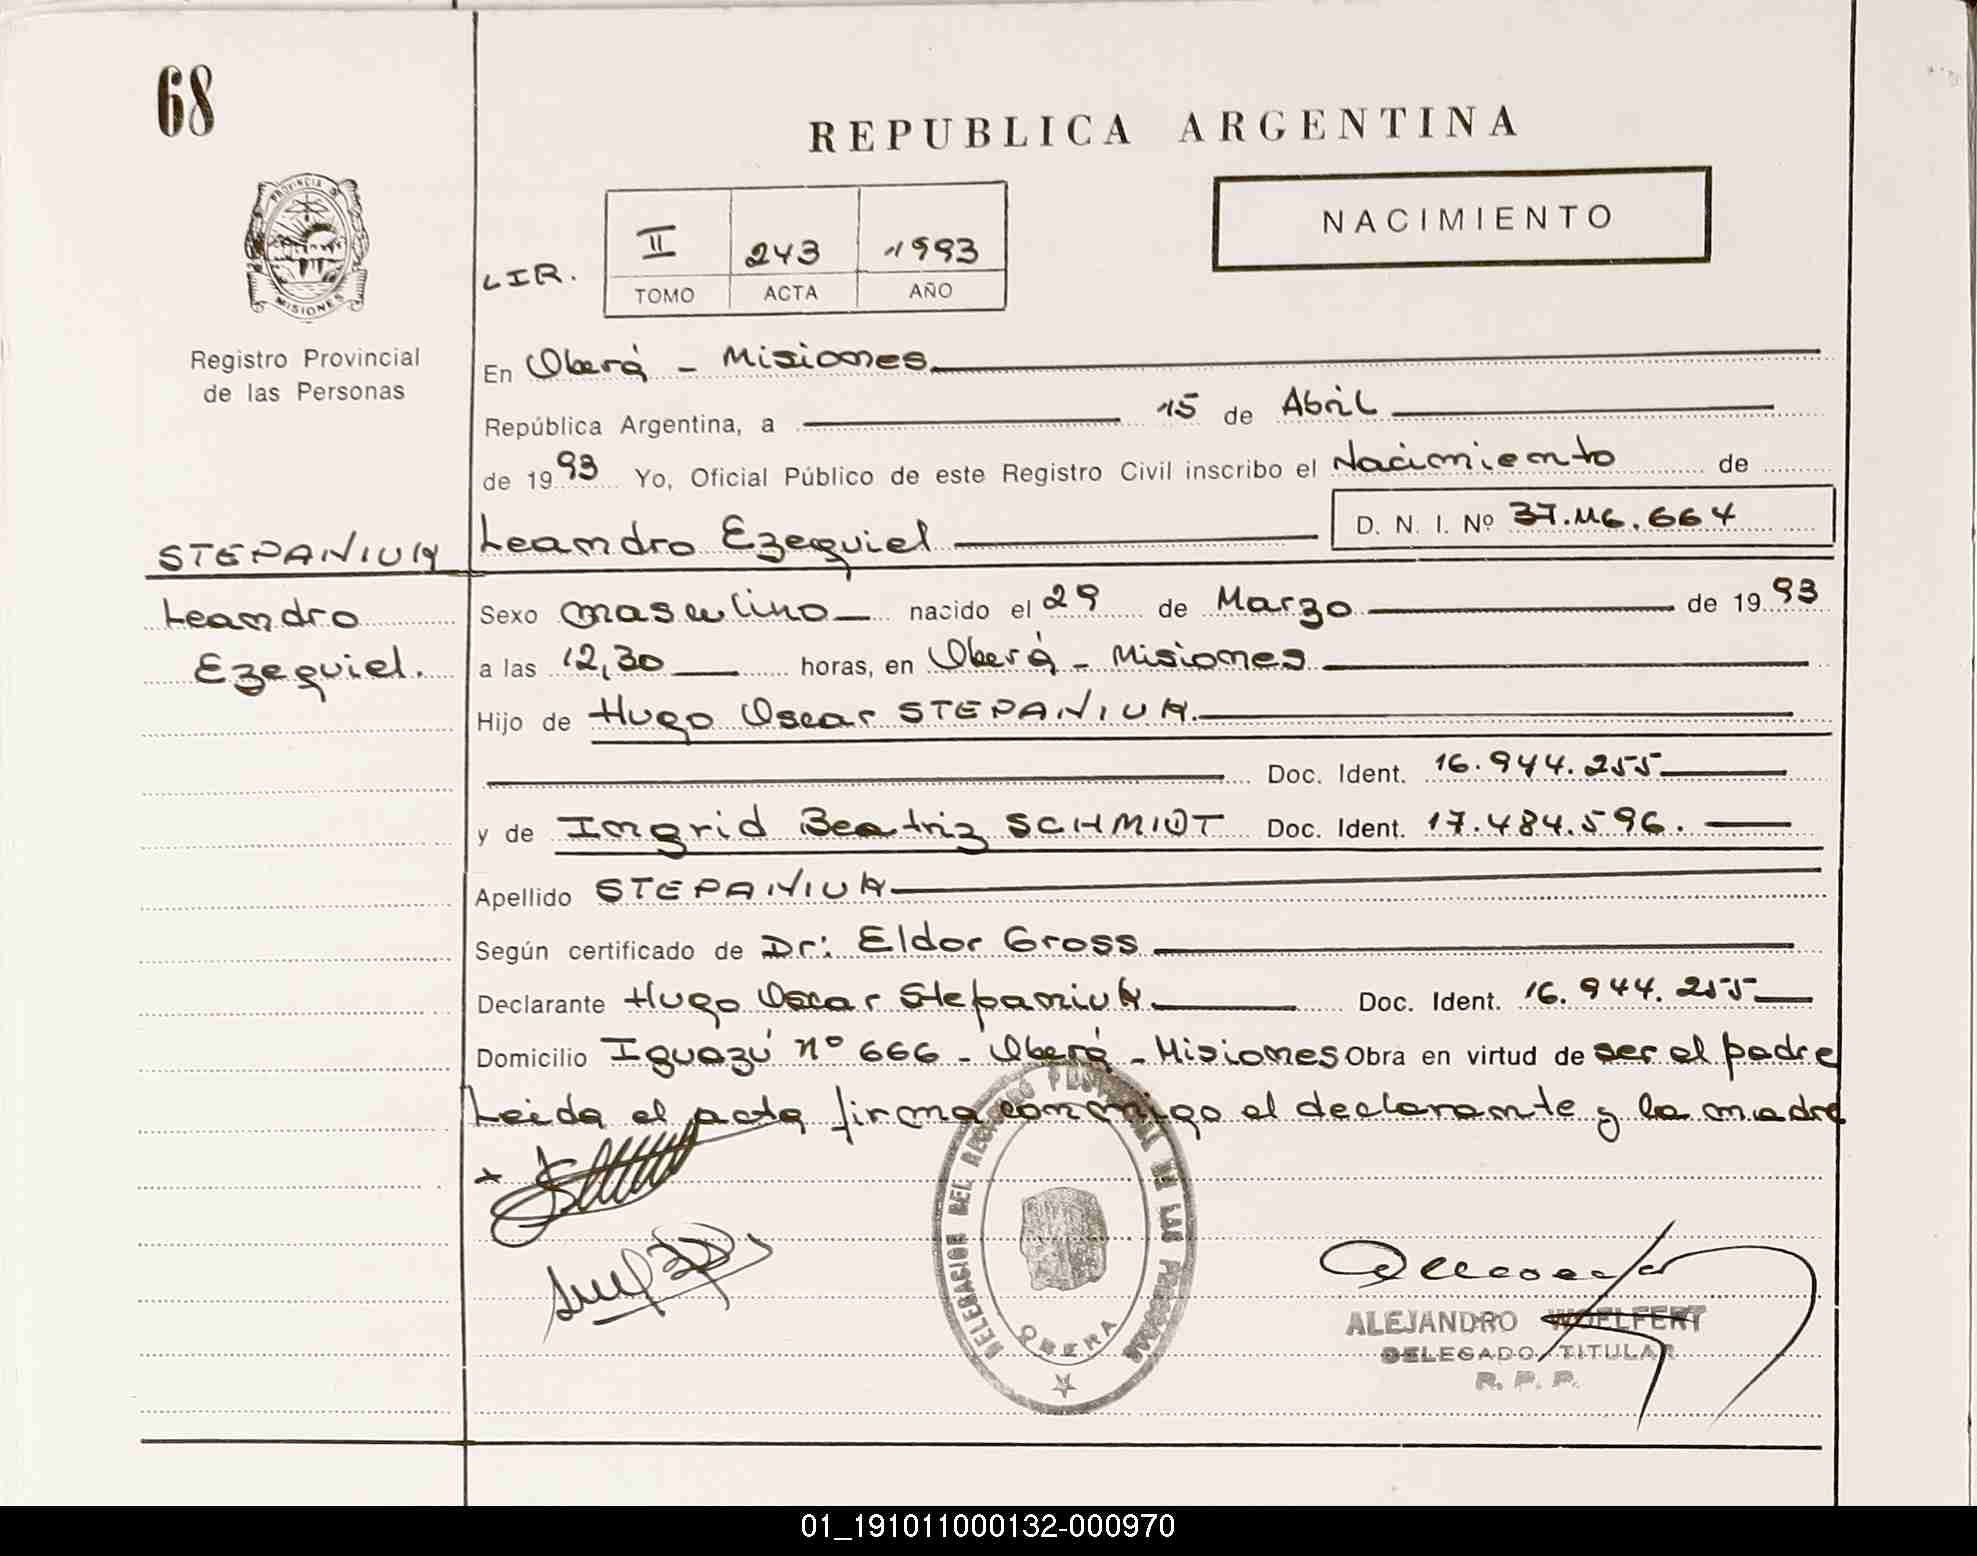 68
REPUBLICA ARGENTINA
PROVINCIA D
MISIONES
NACIMIENTO
LIR.
II 243 1993
TOMO ACTA AÑO
Registro Provincial
de las Personas
En Oberá - Misiones
República Argentina, a 15 de Abril
de 1993 Yo, Oficial Público de este Registro Civil inscribo el Nacimiento de
STEPANIUK Leandro Ezequiel D. N. I. Nº 37.116.664
Leandro
Ezequiel.
Sexo masculino nacido el 29 de Marzo de 1993
a las 12,30 horas, en Oberá - Misiones
Hijo de Hugo Oscar STEPANIUK.
Doc. Ident. 16.944.255
y de Ingrid Beatriz SCHMIDT Doc. Ident. 17.484.596.
Apellido STEPANIUK
Según certificado de Dr: Eldor Gross
Declarante Hugo Oscar Stepaniuk Doc. Ident. 16.944.255
Domicilio Iguazú nº 666 - Oberá - Misiones Obra en virtud de ser el padre
Leida el acta firma conmigo el declarante y la madre
DELEGACION DEL REGISTRO PROVINCIAL DE LAS PERSONAS
OBERA
ALEJANDRO WOELFERT
DELEGADO TITULAR
R. P. P.
01_191011000132-000970